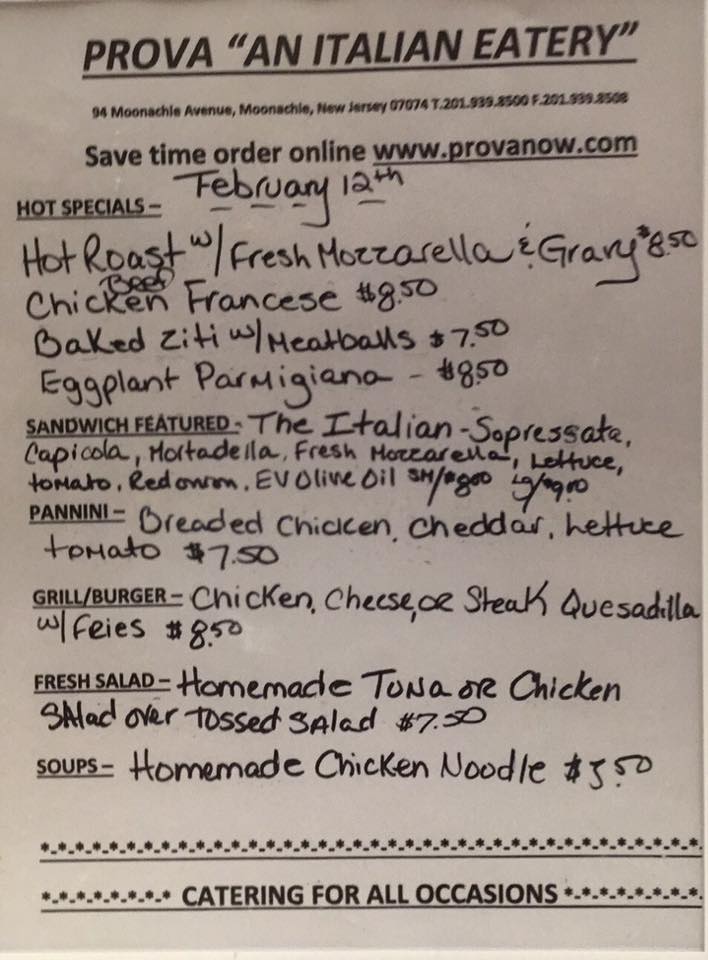 PROVA “AN ITALIAN EATERY”
94 Moonachie Avenue, Moonachie, New Jersey 07074 T.201.939.8500 F.201.939.8508
Save time order online www.provanow.com
February 12th
HOT SPECIALS –
Hot Roast w/ Fresh Mozzarella & Gravy $8.50
Beef
Chicken Francese $8.50
Baked Ziti w/ Meatballs $7.50
Eggplant Parmigiana - $8.50
SANDWICH FEATURED - The Italian - Sopressata,
Capicola, Mortadella, Fresh Mozzarella, Lettuce,
tomato, Red onion, EV Olive Oil SM/$8.00 Lg/$9.00
PANNINI – Breaded Chicken, Cheddar, Lettuce
tomato $7.50
GRILL/BURGER – Chicken, Cheese, or Steak Quesadilla
w/ Feies $8.50
FRESH SALAD – Homemade Tuna or Chicken
Salad over Tossed Salad $7.50
SOUPS – Homemade Chicken Noodle $3.50
*-*-*-*-*-*-*-*-*-*-*-*-*-*-*-*-*-*-*-*-*-*-*-*-*-*-*-*-*-*-*-*-*-*-*-*-*-*.
*-*-*-*-*-*-*-* CATERING FOR ALL OCCASIONS *-*-*-*-*-*-*-*.